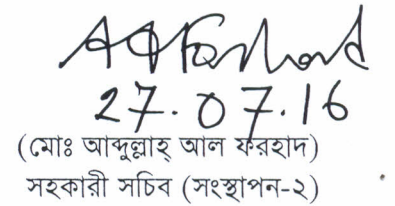 AAFarhad
27.07.16
(মোঃ আব্দুল্লাহ্ আল ফরহাদ)
সহকারী সচিব (সংস্থাপন-২)